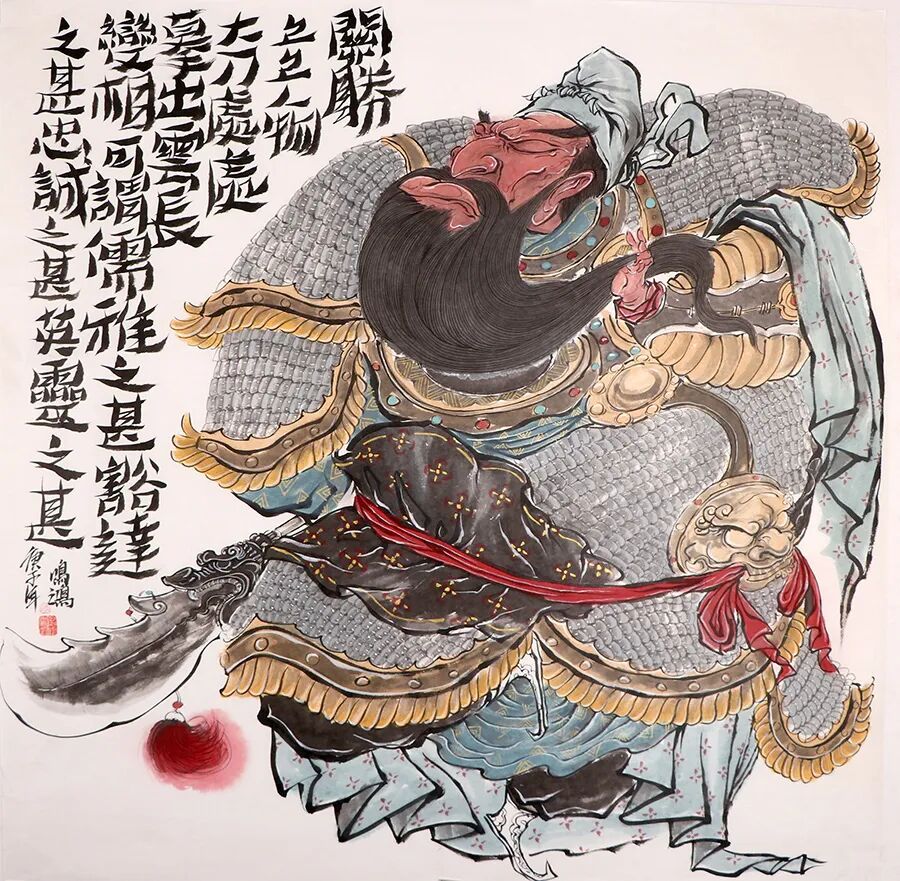 關勝
上上人物
大刀處處
摹出雲長
變相可謂儒雅之甚豁達
之甚忠誠之甚英靈之甚
鳴鴻
庚子年